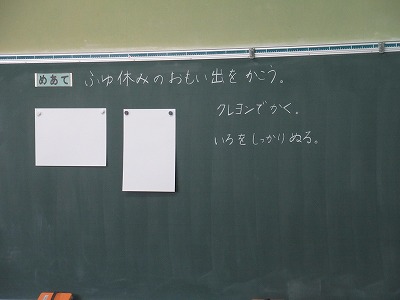 めあて ふゆ休みのおもい出をかこう。
クレヨンでかく。
いろをしっかりぬる。